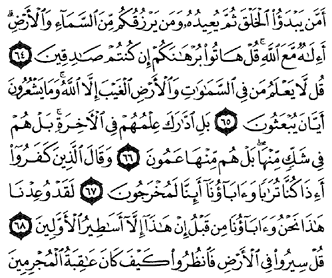 أَمَّن يَبْدَؤُا۟ ٱلْخَلْقَ ثُمَّ يُعِيدُهُۥ وَمَن يَرْزُقُكُم مِّنَ ٱلسَّمَآءِ وَٱلْأَرْضِ ۗ
أَءِلَـٰهٌ مَّعَ ٱللَّهِ ۚ قُلْ هَاتُوا۟ بُرْهَـٰنَكُمْ إِن كُنتُمْ صَـٰدِقِينَ ٦٤
قُل لَّا يَعْلَمُ مَن فِى ٱلسَّمَـٰوَٰتِ وَٱلْأَرْضِ ٱلْغَيْبَ إِلَّا ٱللَّهُ ۚ وَمَا يَشْعُرُونَ
أَيَّانَ يُبْعَثُونَ ٦٥ بَلِ ٱدَّٰرَكَ عِلْمُهُمْ فِى ٱلْـَٔاخِرَةِ ۚ بَلْ هُمْ
فِى شَكٍّ مِّنْهَا ۖ بَلْ هُم مِّنْهَا عَمُونَ ٦٦ وَقَالَ ٱلَّذِينَ كَفَرُوٓا۟
أَءِذَا كُنَّا تُرَٰبًا وَءَابَآؤُنَآ أَئِنَّا لَمُخْرَجُونَ ٦٧ لَقَدْ وُعِدْنَا
هَـٰذَا نَحْنُ وَءَابَآؤُنَا مِن قَبْلُ إِنْ هَـٰذَآ إِلَّآ أَسَـٰطِيرُ ٱلْأَوَّلِينَ ٦٨
قُلْ سِيرُوا۟ فِى ٱلْأَرْضِ فَٱنظُرُوا۟ كَيْفَ كَانَ عَـٰقِبَةُ ٱلْمُجْرِمِينَ